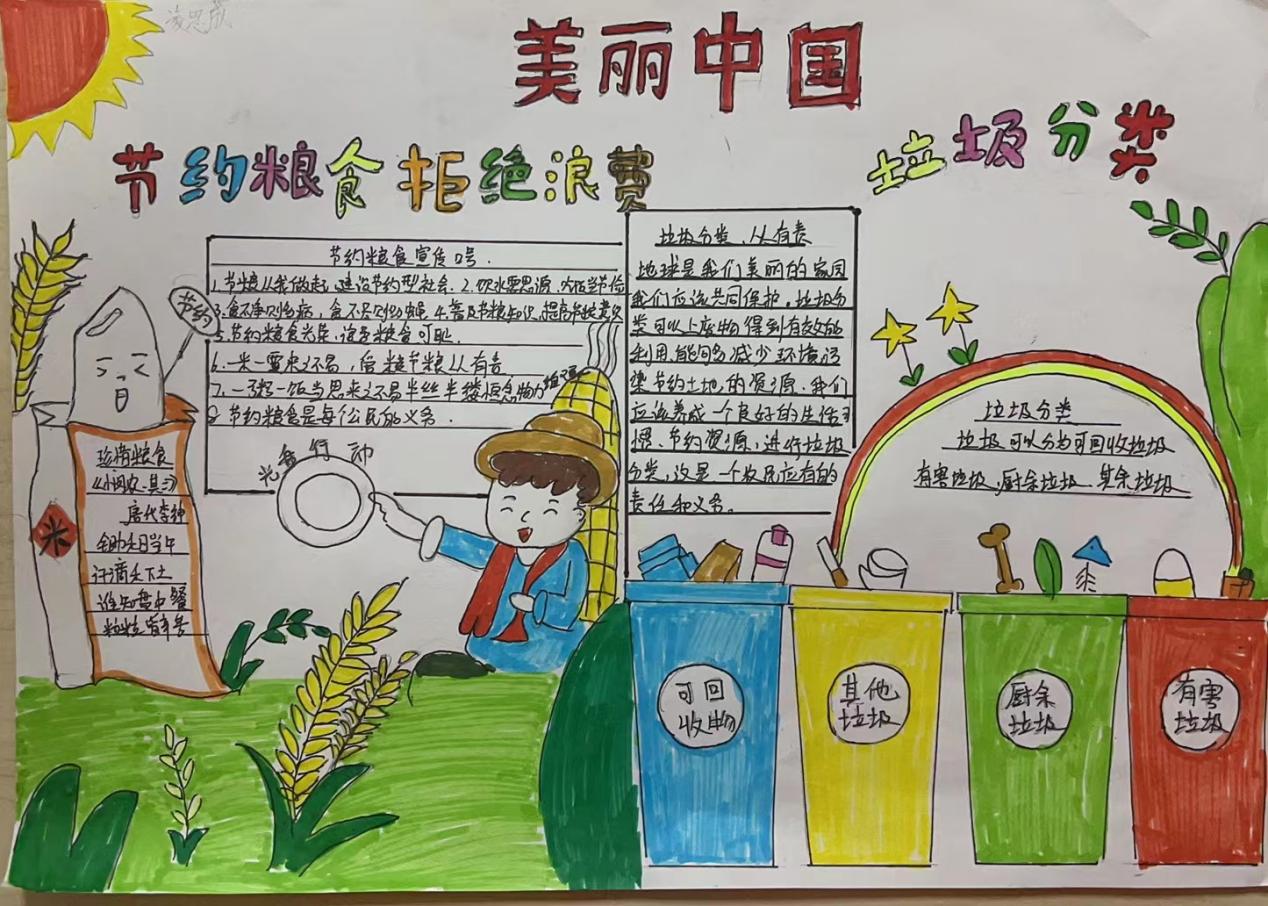 美丽中国
节约粮食拒绝浪费
垃圾分类
节约粮食宣传口号.
1.节粮从我做起,建设节约型社会.2.饮水要思源,吃饭当节俭
3.食不净则伤病,食不 4.普及节粮知识,提高节粮意识
5.节约粮食光荣,浪费粮食可耻.
6.一米一粟来不易,管粮节粮从有责
7.一粥一饭当思来之不易半丝半缕恒念物力维艰
8 节约粮食是每个公民的义务.
垃圾分类,从有责
地球是我们美丽的家园
我们应该共同保护。垃圾分
类可以上废物得到有效的
利用,能够减少环境污
染节约土地的资源.我们
应该养成一个良好的生活习
惯、节约资源,进行垃圾
分类,这是一个农民应有的
责任和义务。
垃圾分类
垃圾可以分为可回收垃圾
有害垃圾,厨余垃圾.其余垃圾
节约
珍惜粮食
《悯农·其二》
唐代李绅
锄禾日当午
汗滴禾下土
谁知盘中餐
粒粒皆辛苦
米
光盘行动
可回
收物
其他
垃圾
厨余
垃圾
有害
垃圾